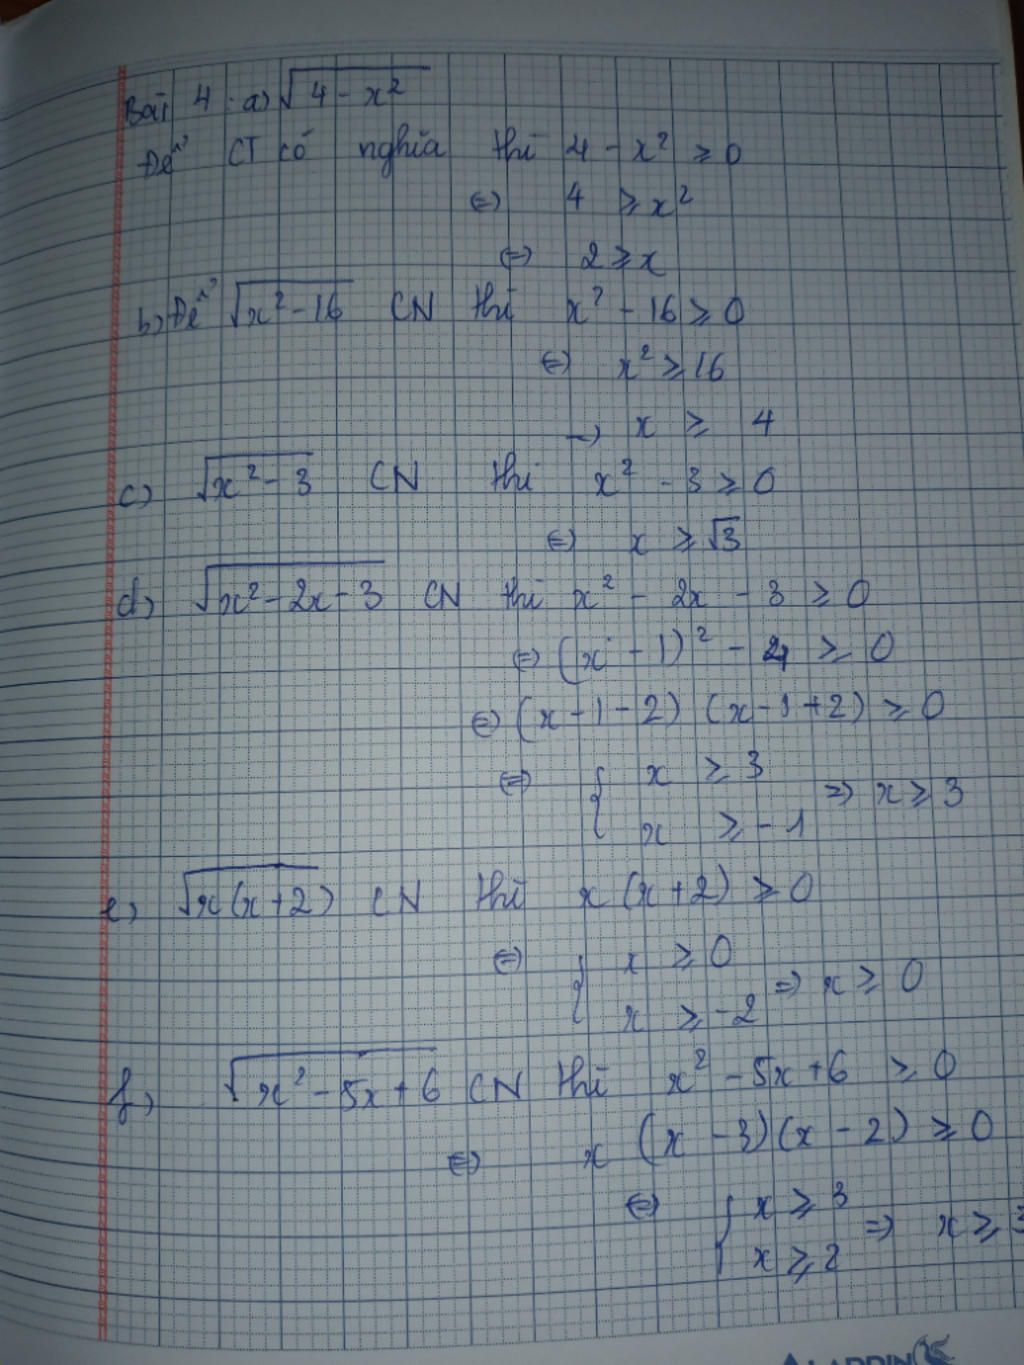 Bài 4: a) √(4 - x²)
Để CT có nghĩa thì 4 - x² ≥ 0
⇔ 4 ≥ x²
⇔ 2 ≥ x
b) Để √(x² - 16) CN thì x² - 16 ≥ 0
⇔ x² ≥ 16
→ x ≥ 4
c) √(x² - 3) CN thì x² - 3 ≥ 0
⇔ x ≥ √3
d) √(x² - 2x - 3) CN thì x² - 2x - 3 ≥ 0
⇔ (x - 1)² - 4 ≥ 0
⇔ (x - 1 - 2) (x - 1 + 2) ≥ 0
⇔ { x ≥ 3
x ≥ -1 ⇒ x ≥ 3
e) √(x(x + 2)) CN thì x (x + 2) ≥ 0
⇔ { x ≥ 0
x ≥ -2 ⇒ x ≥ 0
f) √(x² - 5x + 6) CN thì x² - 5x + 6 ≥ 0
⇔ x (x - 3)(x - 2) ≥ 0
⇔ { x ≥ 3
x ≥ 2 ⇒ x ≥ 3
ALADDIN